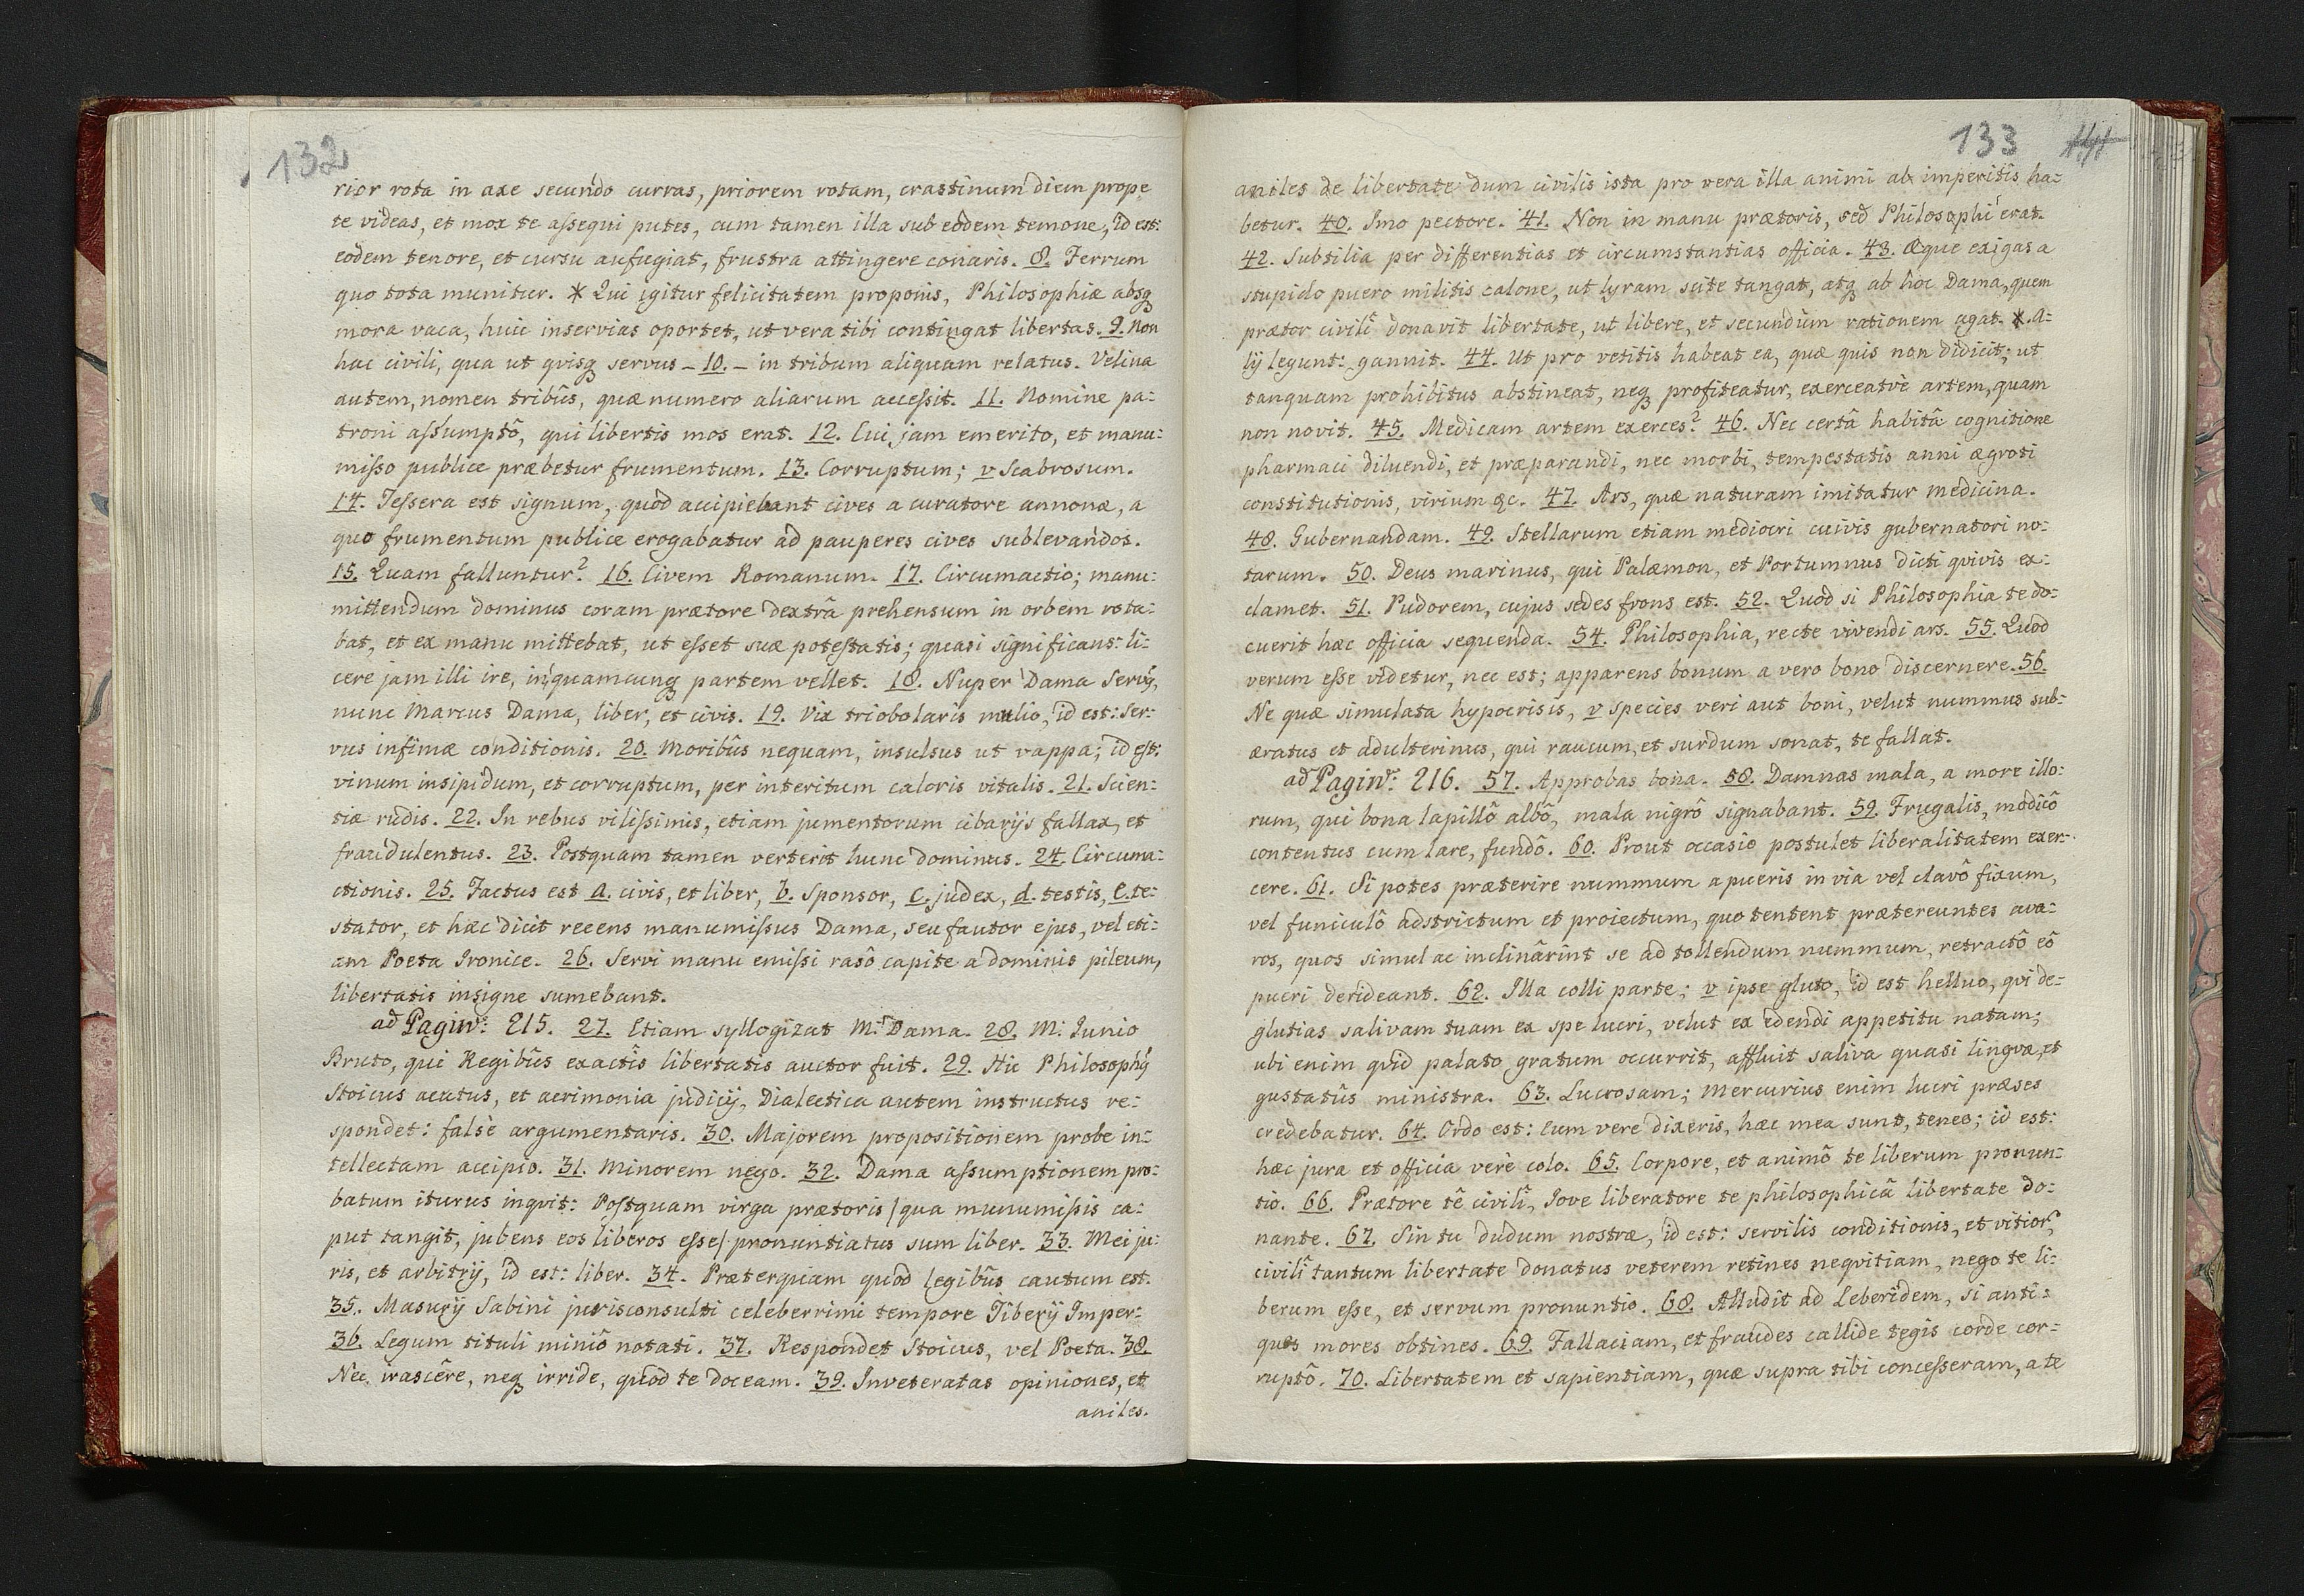 132
rior rota in axe secundo curras, priorem rotam, crastinum diem prope
te videas, et mox te aſsequi putes, cum tamen illa sub eodem temone, id est:
eodem tenore, et cursu aufugiat, frustra attingere conaris. 8. Ferrum
quo tota munitur. * Qui igitur felicitatem proponis, Philosophiæ absq
mora vaca, huic inservias oportet, ut vera tibi contingat libertas. 9. Non
hac civili, qua ut qvisq servus – 10. – in tribum aliquam relatus. Velina
autem, nomen tribûs, quæ numero aliarum acceſsit. 11. Nomine pa:
troni aſsumptô, qui libertis mos erat. 12. Cui jam emerito, et manu:
miſso publice præbetur frumentum. 13. Corruptum; v Scabrosum.
14. Teſsera est signum, quod accipiebant cives a curatore annonæ, a
quo frumentum publice erogabatur ad pauperes cives sublevandos.
15. Quam falluntur? 16. Civem Romanum. 17. Circumactio; manu:
mittendum dominus coram prætore dextrâ prehensum in orbem rota:
bat, et ex manu mittebat, ut eſset suæ poteſtatis; quasi significans: li:
cere jam illi ire, in quamcunq partem vellet. 18. Nuper Dama Servq,
nunc Marcus Dama, liber, et civis. 19. Vix triobolaris mulio, id est: ser:
vus infimæ conditionis. 20. Moribûs nequam, insulsus ut vappa; id eſt:
vinum insipidum, et corruptum, per interitum caloris vitalis. 21. Scien:
tiæ rudis. 22. In rebus viliſsimis, etiam jumentorum cibarijs fallax, et
fraudulentus. 23. Postquam tamen verterit hunc dominus. 24. Circuma:
ctionis. 25. Factus est a. civis, et liber, b. Sponsor, c. judex, d. testis, e. te:
stator, et hæc dicit recens manumiſsus Dama, seu fautor ejus, vel eti:
am Poeta Ironice. 26. Servi manu emiſsi rasô capite a dominis pileum,
libertatis insigne sumebant.
ad Pagin: 215. 27. Etiam syllogizat M: Dama. 28. M: Iunio
Bruto, qui Regibûs exactîs libertatis auctor fuit. 29. Hic Philosophq
Stoicus acutus, et acrimonia judicij, Dialectica autem instructus re:
spondet: falsè argumentaris. 30. Majorem propositionem probe in:
tellectam accipio. 31. Minorem nego. 32. Dama aſsumptionem pro:
batum iturus inqvit: Poſtquam virga prætoris /qua munumiſsis ca:
put tangit, jubens eos liberos eſse/ pronuntiatus sum liber. 33. Mei ju:
ris, et arbitrij, id est: liber. 34. Præterquam quod legibûs cautum est.
35. Masurij Sabini jurisconsulti celeberrimi tempore Tiberij Imper:
36. Legum tituli miniô notati. 37. Respondet Stoicus, vel Poeta. 38.
Nec irascêre, neq irride, quod te doceam. 39. Inveteratas opiniones, et
aniles.
133
aniles de libertate dum civilis ista pro vera illa animi ab imperitîs ha:
betur. 40. Imo pectore. 41. Non in manu prætoris, sed Philosophi erat.
42. Subtilia per differentias et circumstantias officia. 43. Æque exigas a
stupido puero militis calone, ut lyram scite tangat, atq ab hoc Dama, quem
prætor civilî donavit libertate, ut libere, et secundum rationem agat. *. A:
lij legunt: gannit. 44. Ut pro vetitis habeat ea, quæ quis non didicit; ut
tanquam prohibitus abstineat, neq profiteatur, exerceatvè artem, quam
non novit. 45. Medicam artem exerces? 46. Nec certâ habitâ cognitione
pharmaci diluendi, et præparandi, nec morbi, tempestatis anni ægroti
constitutionis, virium &c. 47. Ars, quæ naturam imitatur medicina.
48. Gubernandam. 49. Stellarum etiam mediocri cuivis gubernatori no:
tarum. 50. Deus marinus, qui Palæmon, et Portumnus dicti qvivis ex:
clamet. 51. Pudorem, cujus sedes frons est. 52. Quod si Philosophia te do:
cuerit hæc officia sequenda. 54. Philosophia, recte vivendi ars. 55. Quod
verum eſse videtur, nec est; apparens bonum a vero bono discernere. 56.
Ne quæ simulata hypocrisis, v species veri aut boni, velut nummus sub:
æratus et adulterinus, qui raucum, et surdum sonat, te fallat.
ad Pagin: 216. 57. Approbas bona. 58. Damnas mala, a more illo:
rum, qui bona lapillô albô, mala nigrô signabant. 59. Frugalis, modicô
contentus cum lare, fundô. 60. Prout occasio postulet liberalitatem exer:
cere. 61. Si potes præterire nummum a pueris in via vel clavô fixum,
vel funiculô adstrictum et proiectum, quo tentent prætereuntes ava:
ros, quos simul ac inclinârint se ad tollendum nummum, retractô eô
pueri derideant. 62. Illa colli parte; v ipse gluto, id est helluo, qvi de:
glutias salivam tuam ex spe lucri, velut ex edendi appetitu natam;
ubi enim qvid palato gratum occurrit, affluit saliva quasi lingvæ, et
gustatûs ministra. 63. Lucrosam; Mercurius enim lucri præses
credebatur. 64. Ordo est: Cum vere dixeris, hæc mea sunt, teneo; id est:
hæc jura et officia verè colo. 65. Corpore, et animô te liberum pronun:
tio. 66. Prætore tê civilî, Iove liberatore te philosophicâ libertate do:
nante. 67. Sin tu dudum nostræ, id est: servilis conditionis, et vitior,
civilî tantum libertate donatus veterem retines neqvitiam, nego te li:
berum eſse, et servum pronuntio. 68. Alludit ad Leberidem, si anti:
quos mores obtines. 69. Fallaciam, et fraudes callide tegis corde cor:
ruptô. 70. Libertatem et sapientiam, quæ supra tibi conceſseram, a te